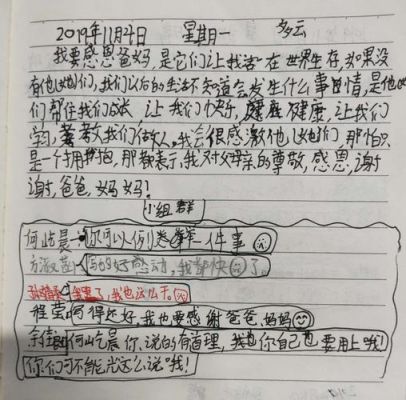 2019年11月4日 星期一 多云
我要感恩爸妈,是它们让我活在世界生存,如果没
有他她们,我们以后的生活不知道会发生什么事情,是他她
们帮住我们成长,让我们快乐,健康,让我们
学,教我们做人。我会很感激他她们那怕只
是一个拥抱,那都表示,我对父母亲的尊敬,感恩,谢
谢,爸爸,妈妈!
小组群
何 晨 你可以例举一件事
写的好感动,我都快 了。
我也这么干。
雅 写得还好,我也要感谢爸爸,妈妈
何 晨你,说的有道理,我也你自己也要用上哦!
你们可不能光这么说哦!